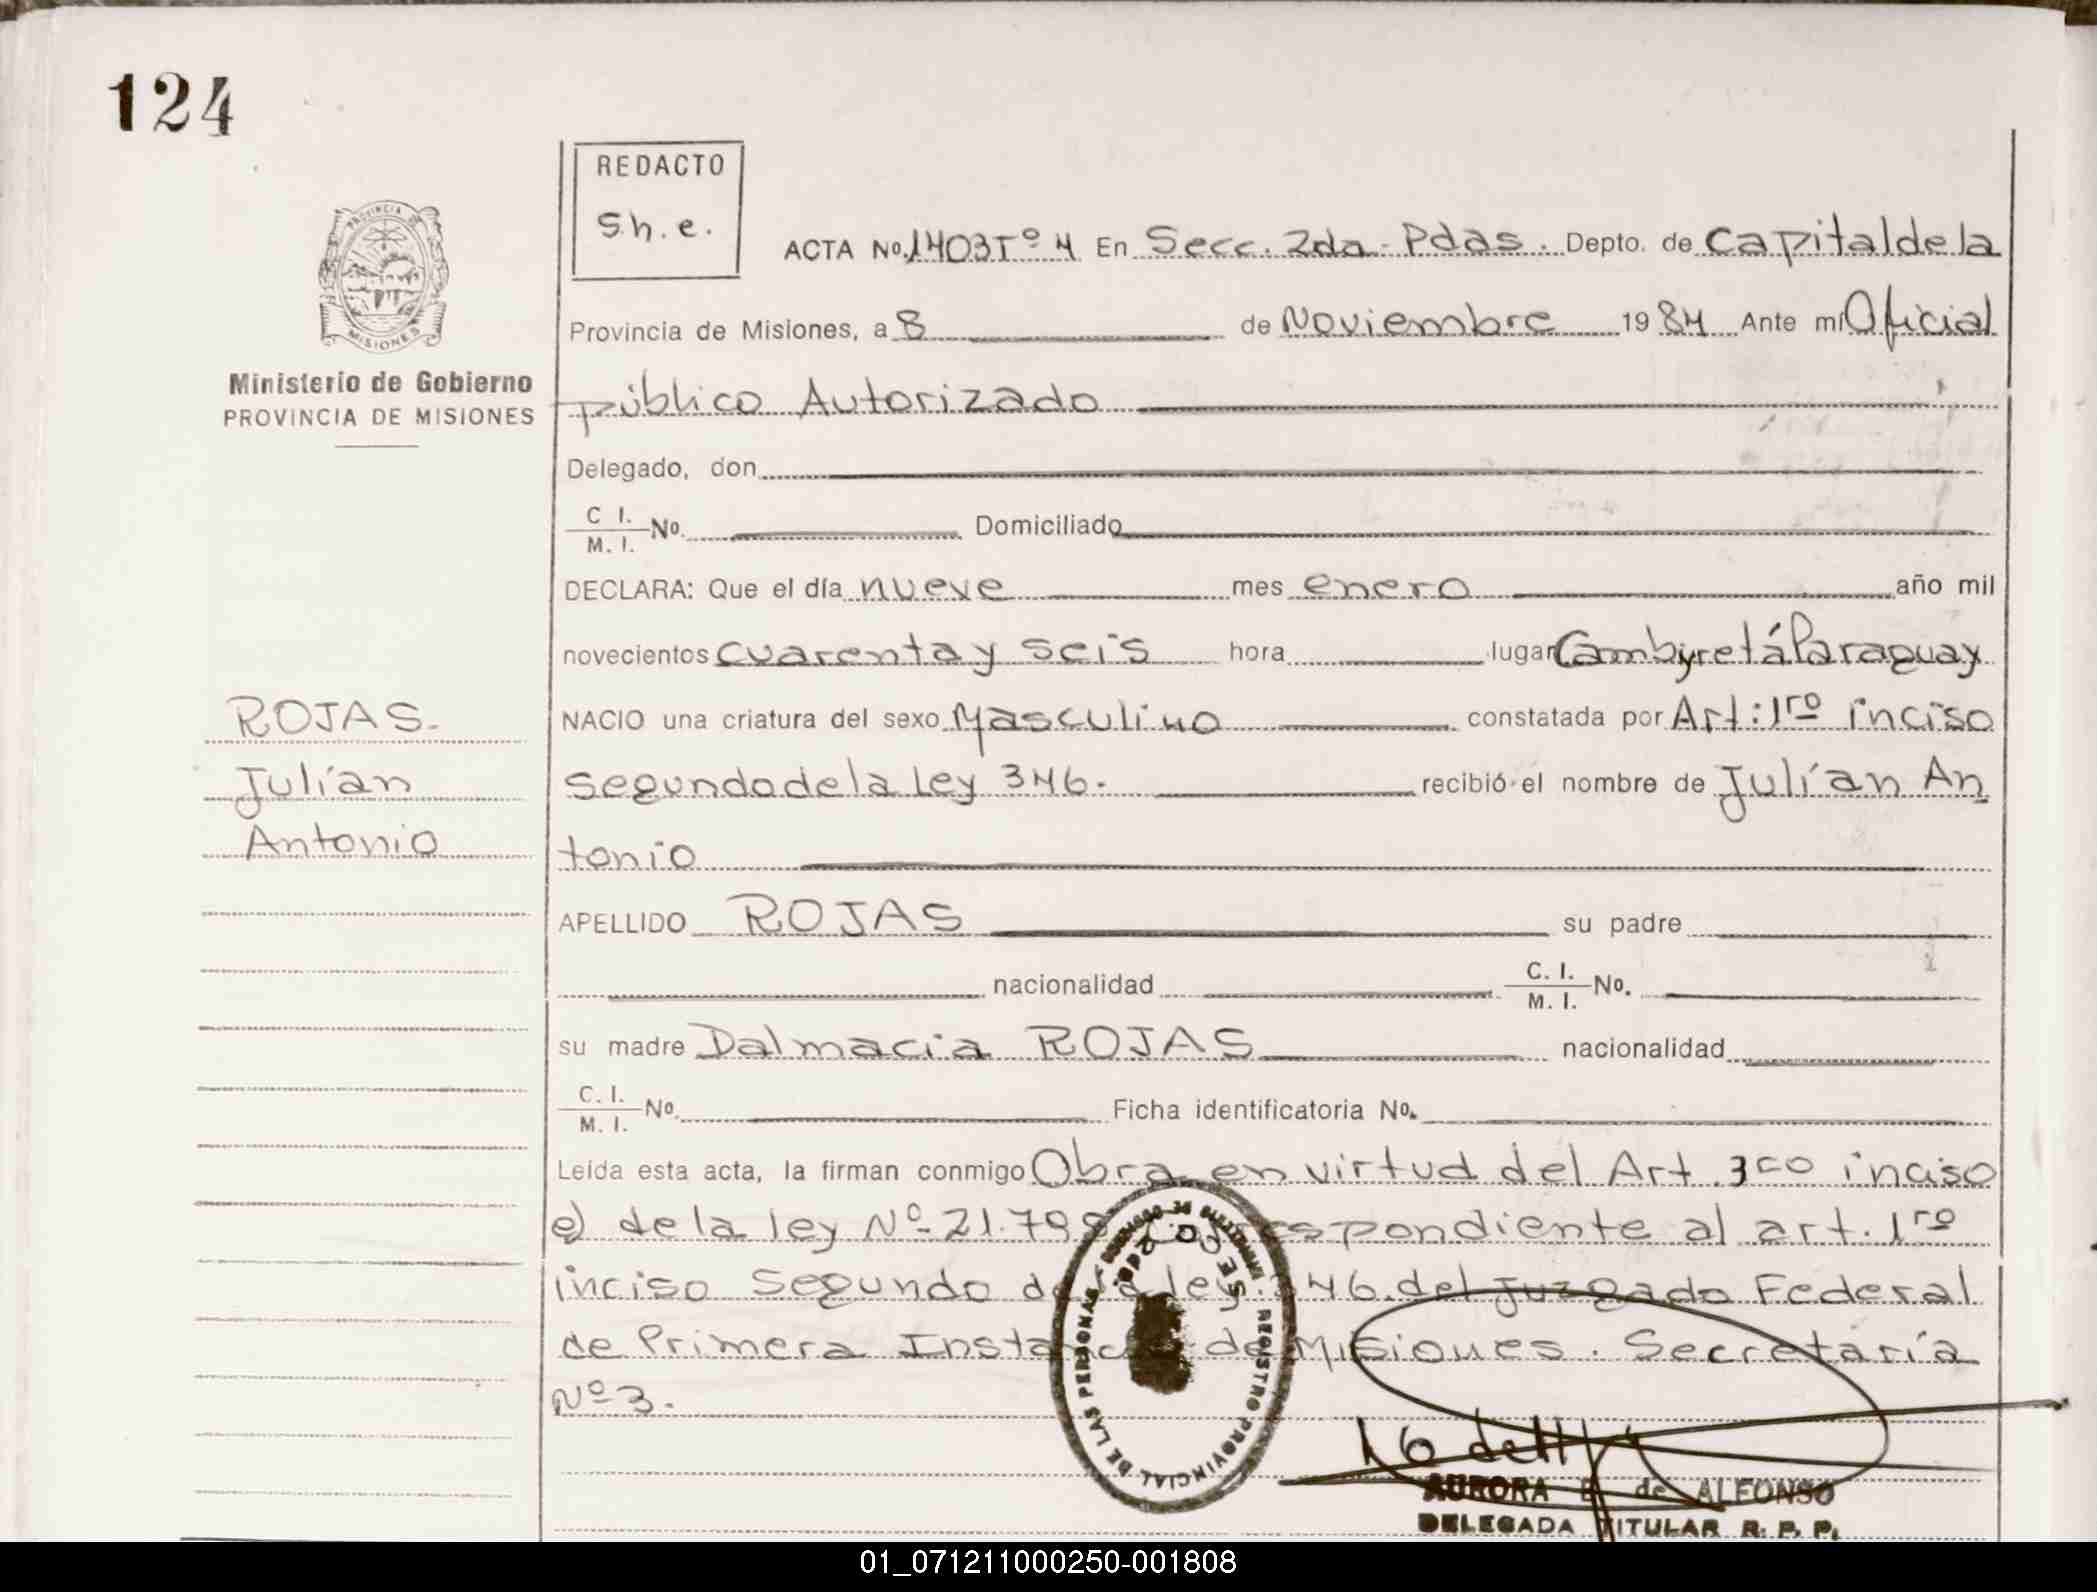 124
REDACTO
S.h.e.
ACTA No. 1403 Tº 4 En Secc. 2da. Pdas. Depto. de Capital de la
Provincia de Misiones, a 8 de Noviembre 1984 Ante mí Oficial
público Autorizado
Delegado, don
C I. / M. I. No. Domiciliado
DECLARA: Que el día nueve mes enero año mil
novecientos cuarenta y seis hora lugar Cambyretá Paraguay
NACIO una criatura del sexo Masculino constatada por Art: 1ro inciso
segundo de la Ley 346. recibió el nombre de Julían An
tonio
APELLIDO ROJAS su padre
nacionalidad C. I. / M. I. No.
su madre Dalmacia ROJAS nacionalidad
C. I. / M. I. No. Ficha identificatoria No.
Leída esta acta, la firman conmigo Obra en virtud del Art. 3ro inciso
e) de la ley Nº 21.798 Correspondiente al art. 1ro
inciso segundo de la ley. 346. del Juzgado Federal
de Primera Instancia de Misiones. Secretaría
Nº 3.
PROVINCIA DE
MISIONES
Ministerio de Gobierno
PROVINCIA DE MISIONES
ROJAS.
Julían
Antonio
REGISTRO PROVINCIAL DE LAS PERSONAS
AURORA de ALFONSO
DELEGADA TITULAR R. P. P.
01_071211000250-001808